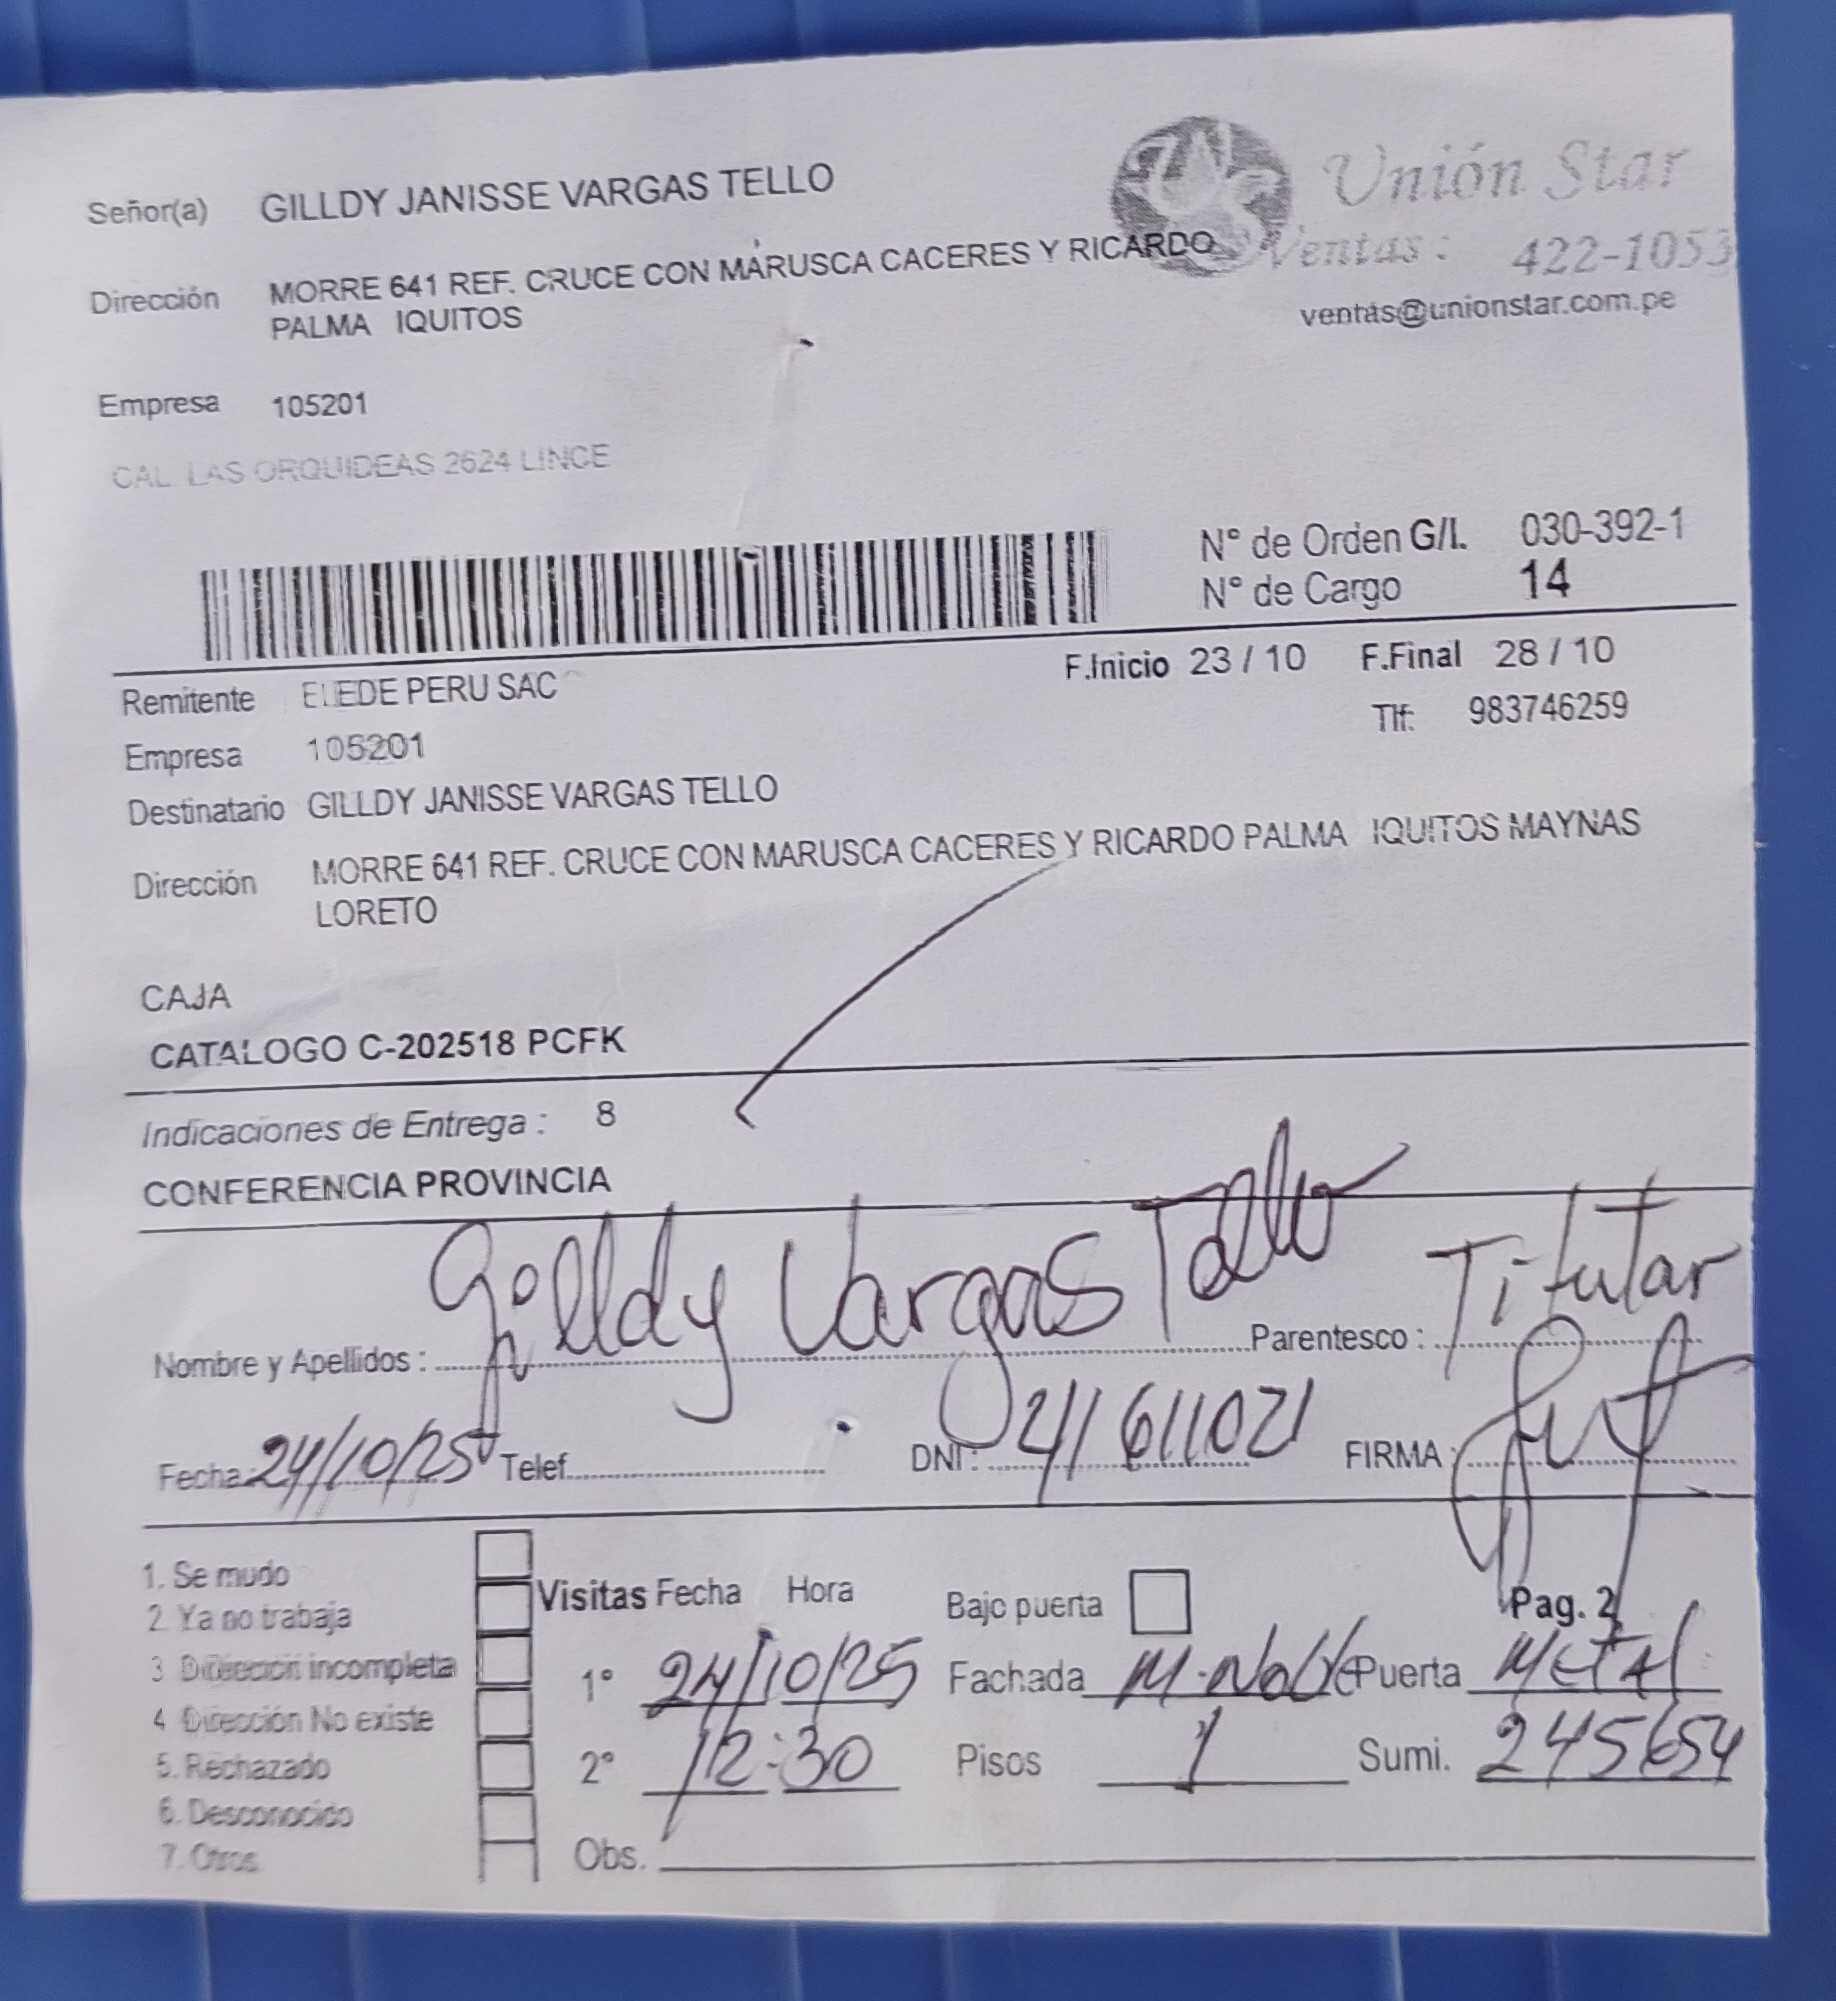 Señor(a) GILLDY JANISSE VARGAS TELLO
Unión Star
Ventas : 422-1053
ventas@unionstar.com.pe
Dirección MORRE 641 REF. CRUCE CON MARUSCA CACERES Y RICARDO
PALMA IQUITOS
Empresa 105201
CAL. LAS ORQUIDEAS 2624 LINCE
N° de Orden G/I. 030-392-1
N° de Cargo 14
F.Inicio 23 / 10 F.Final 28 / 10
Remitente ELEDE PERU SAC
Tlf: 983746259
Empresa 105201
Destinatario GILLDY JANISSE VARGAS TELLO
Dirección MORRE 641 REF. CRUCE CON MARUSCA CACERES Y RICARDO PALMA IQUITOS MAYNAS
LORETO
CAJA
CATALOGO C-202518 PCFK
Indicaciones de Entrega : 8
CONFERENCIA PROVINCIA
Nombre y Apellidos : Gilldy Vargas Tello Parentesco : Titular
Fecha: 24/10/25 Telef. DNI : FIRMA :
1. Se mudo
2. Ya no trabaja
3 Dirección incompleta
4 Dirección No existe
5. Rechazado
6. Desconocido
7. Otros
Visitas Fecha Hora Bajo puerta Pag. 2
1° 24/10/25 Fachada M. Noble Puerta Metal
2° 12:30 Pisos 1 Sumi. 245654
Obs.